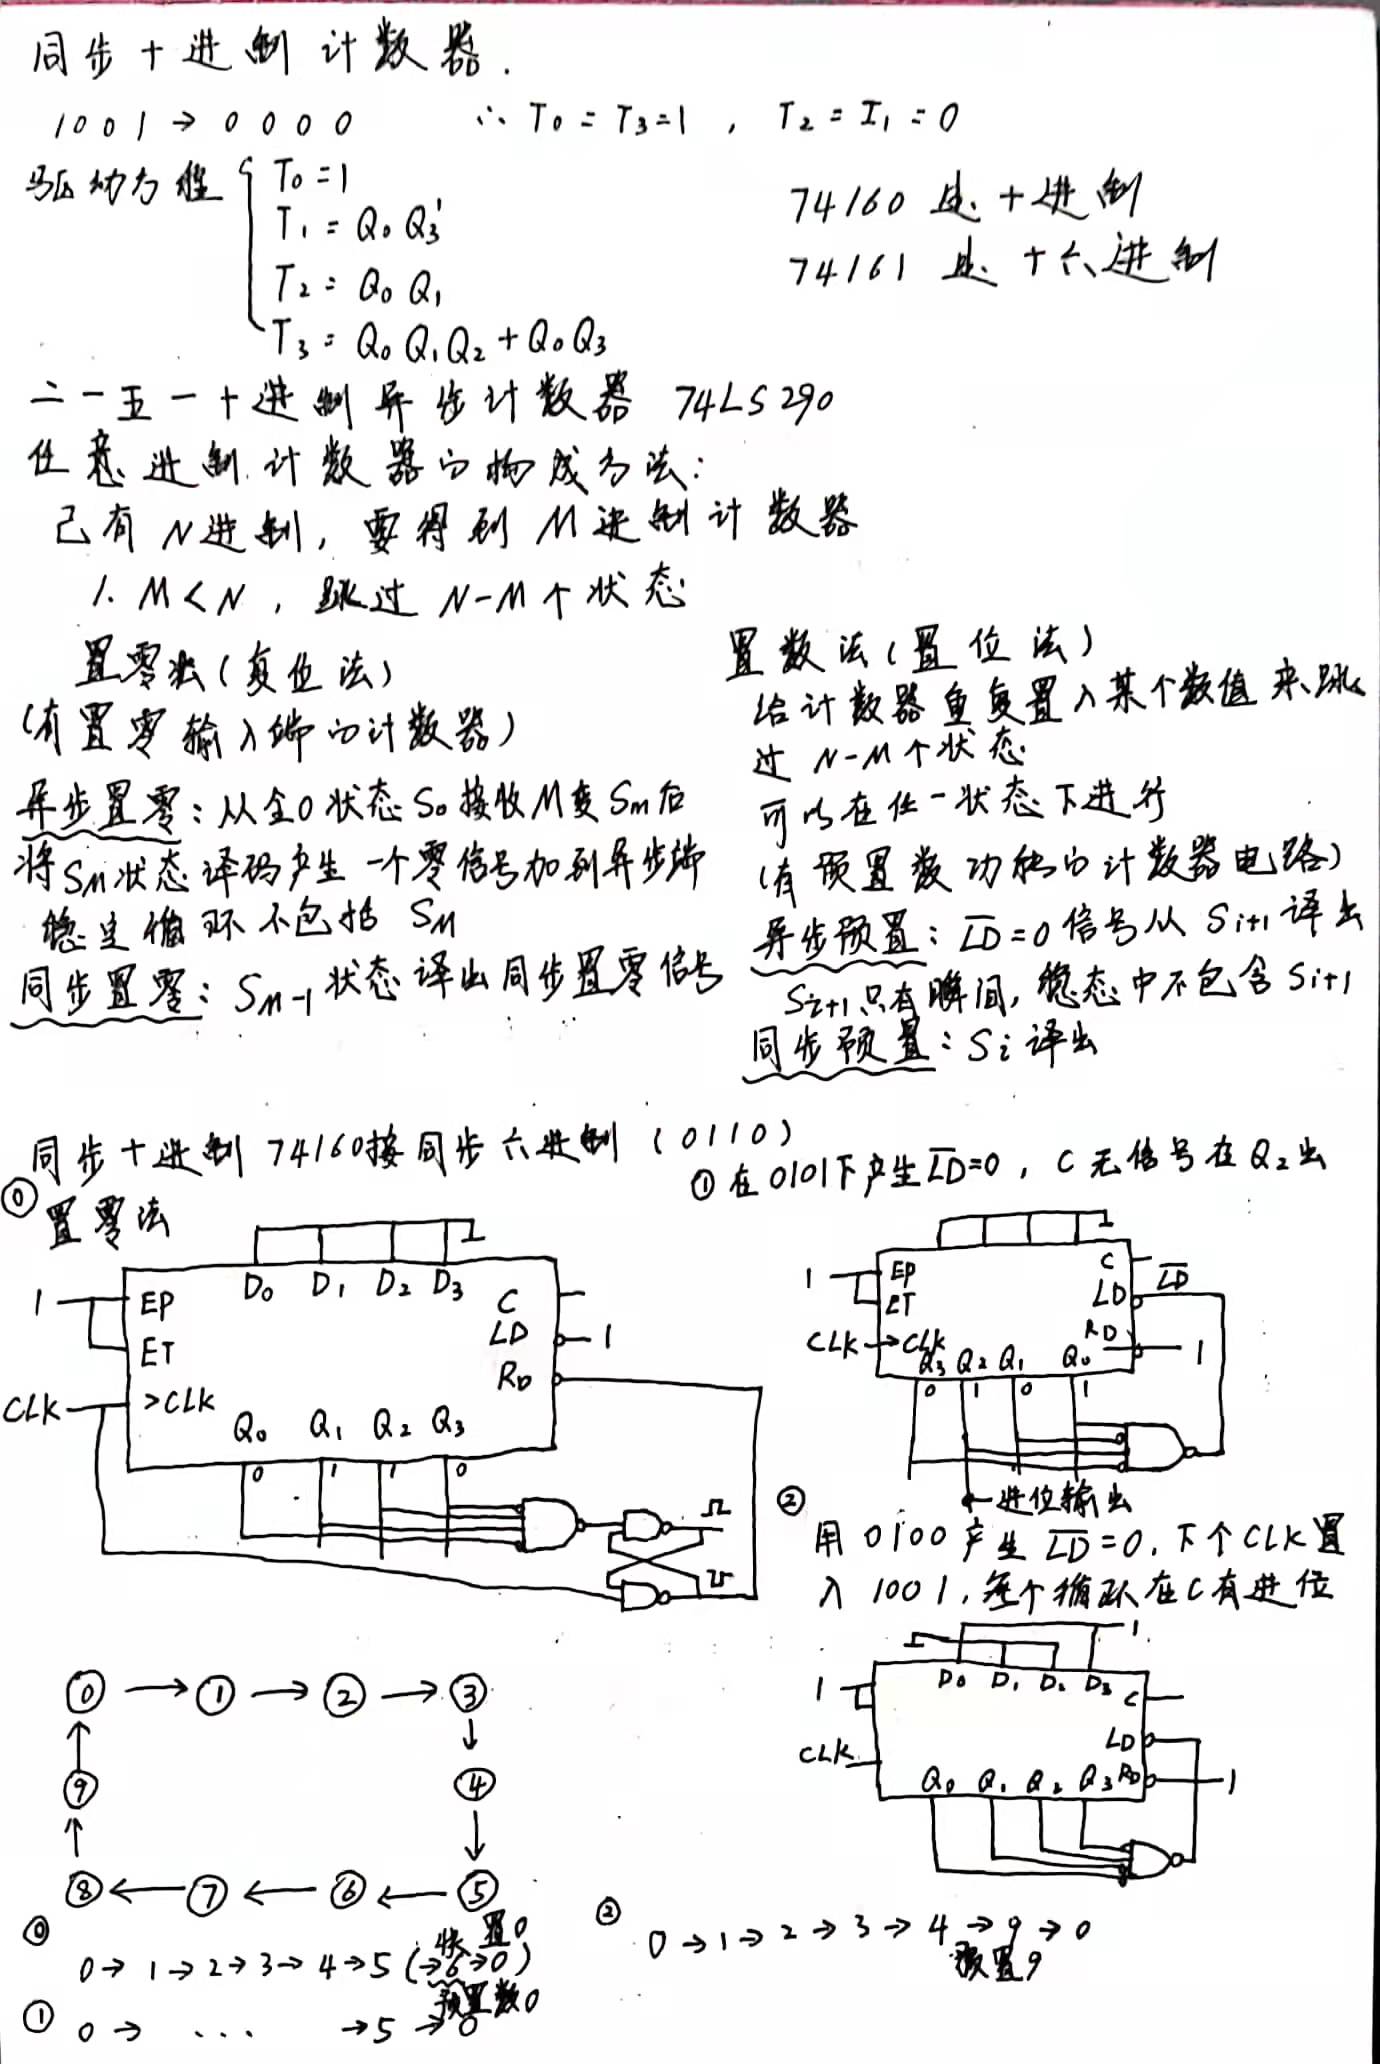 同步十进制计数器.
1001→0000 ∴T₀=T₃=1, T₂=T₁=0
驱动方程 T₀=1
T₁=Q₀Q₃'
T₂=Q₀Q₁
T₃=Q₀Q₁Q₂+Q₀Q₃
74160 是十进制
74161 是十六进制
二一五一十进制异步计数器 74LS290
任意进制计数器的构成方法:
已有N进制,要得到M进制计数器
1. M<N, 跳过 N-M个状态
置零法(复位法)
(有置零输入端的计数器)
异步置零:从全0状态S₀接收M变Sm后
将SM状态译码产生一个零信号加到异步端
稳定循环不包括 SM
同步置零:SM-1状态译出同步置零信号
置数法(置位法)
给计数器重复置入某个数值来跳
过 N-M个状态
可以在任一状态下进行
(有预置数功能的计数器电路)
异步预置:L̅D̅=0信号从Si+1译出
Si+1只有瞬间,稳态中不包含Si+1
同步预置:Si译出
同步十进制74160接同步六进制(0110)
⓪ 置零法
1 EP D₀ D₁ D₂ D₃ C
ET LD 1
CLK >CLK RD
Q₀ Q₁ Q₂ Q₃
0 1 1 0
① 在0101下产生L̅D̅=0, C无信号在Q₂出
1 EP C
ET LD L̅D̅
CLK CLK RD 1
Q₃ Q₂ Q₁ Q₀
0 1 0 1
←进位输出
② 用0100产生L̅D̅=0,下个CLK置
入1001,每个循环在C有进位
1
1 D₀ D₁ D₂ D₃ C
CLK LD
Q₀ Q₁ Q₂ Q₃ RD 1
⓪→①→②→③
⑨ ④
⑧←⑦←⑥←⑤
⓪ 快置0
0→1→2→3→4→5(→6→0)
① 预置数0
0→ ... →5→0
② 0→1→2→3→4→9→0
预置9